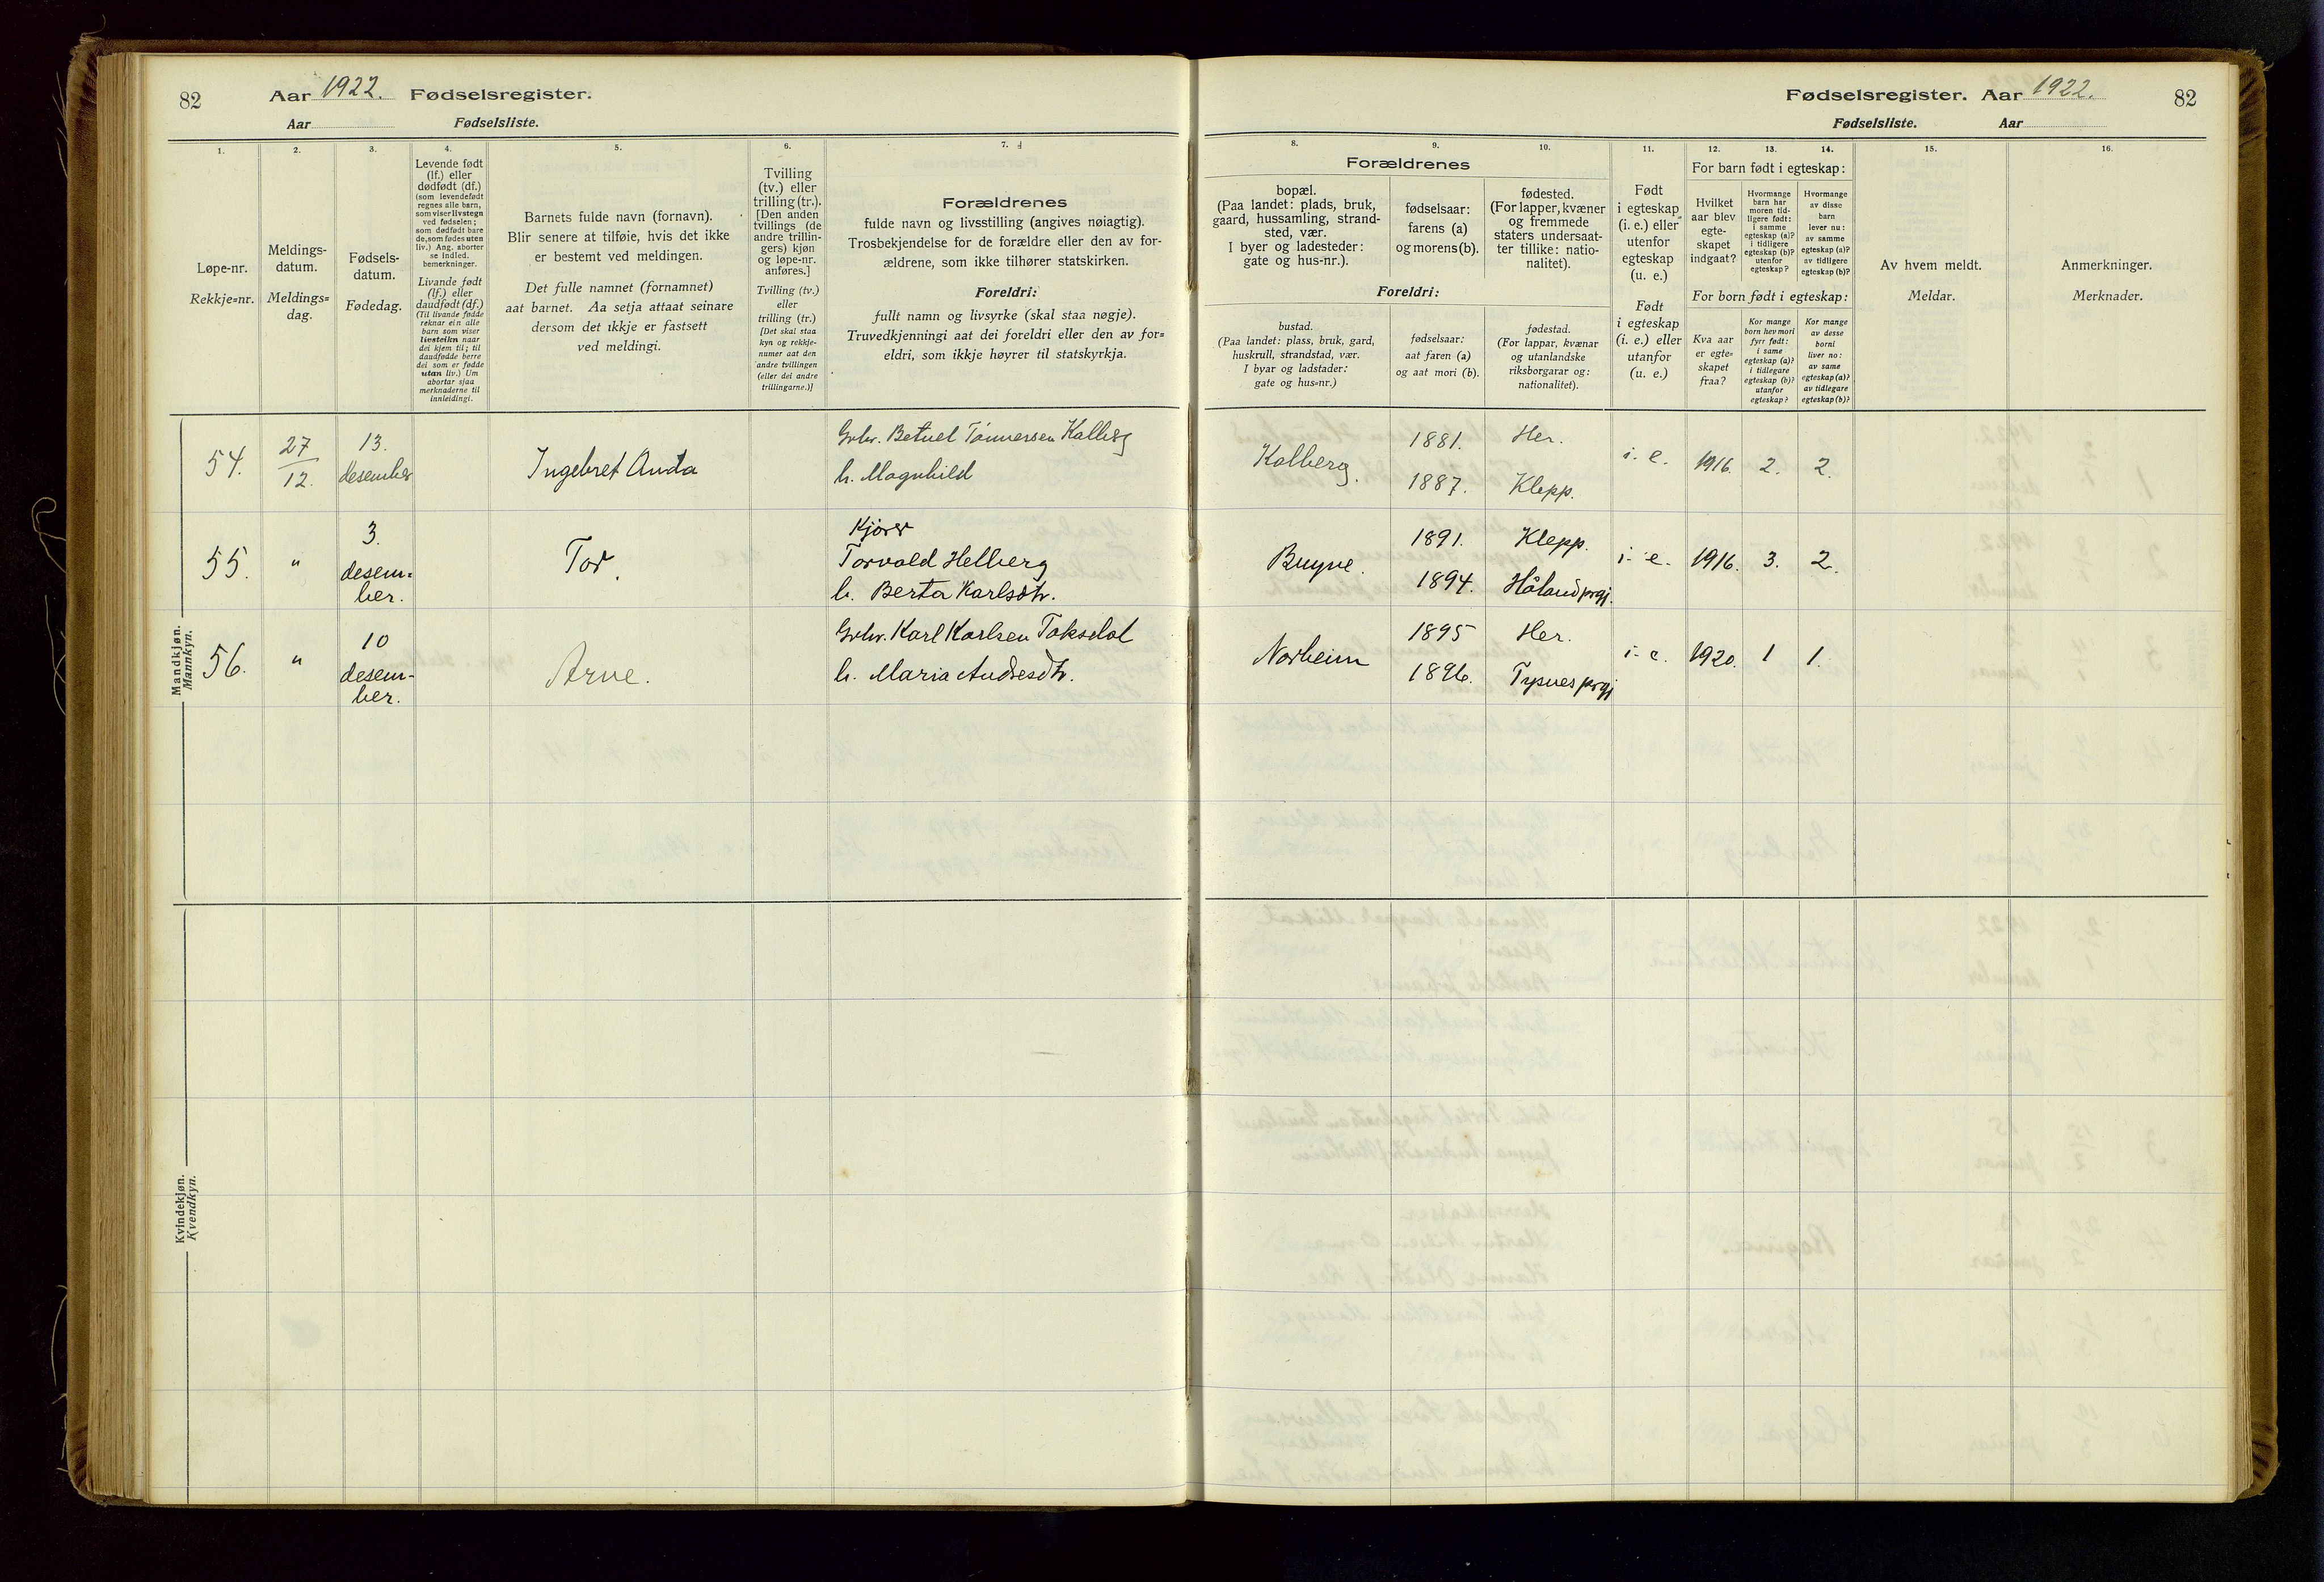 82
Aar 1922. Fødselsregister.
Aar Fødselsliste.
1.
2.
3.
4.
5.
6.
7.
Løpe-nr.
Rekkje=nr.
Meldings-
datum.
Meldings=
dag.
Fødsels-
datum.
Fødedag.
Levende født
(lf.) eller
dødfødt (df.)
(som levendefødt
regnes alle barn,
som viser livstegn
ved fødselen;
som dødfødt bare
de, som fødes uten
liv.) Ang. aborter
se indled.
bemerkninger.
Livande født
(lf.) eller
daudfødt (df.)
(Til livande fødde
reknar ein alle
barn som viser
livsteikn naar
dei kjem til; til
daudfødde berre
dei som er fødde
utan liv.) Um
abortar sjaa
merknaderne til
innleidingi.
Barnets fulde navn (fornavn).
Blir senere at tilføie, hvis det ikke
er bestemt ved meldingen.
Det fulle namnet (fornamnet)
aat barnet. Aa setja attaat seinare
dersom det ikkje er fastsett
ved meldingi.
Tvilling
(tv.) eller
trilling (tr.).
[Den anden
tvillings (de
andre trillin-
gers) kjøn
og løpe-nr.
anføres.]
Tvilling (tv.)
eller
trilling (tr.)
[Det skal staa
kyn og rekkje-
numer aat den
andre tvillingen
(eller dei andre
trillingarne.)]
Forældrenes
fulde navn og livsstilling (angives nøiagtig).
Trosbekjendelse for de forældre eller den av for-
ældrene, som ikke tilhører statskirken.
Foreldri:
fullt namn og livsyrke (skal staa nøgje).
Truvedkjenningi aat dei foreldri eller den av for=
eldri, som ikkje høyrer til statskyrkja.
Mandkjøn.
Mannkyn.
54.
27
12.
13.
desember
Ingebret Anda
Grbr. Betuel Tønnessen Kalberg
h. Magnhild
55.
"
3.
desem=
ber.
Tor.
Kjører
Torvald Helberg
h. Berta Karlsdtr.
56.
"
10
desem-
ber.
Arne.
Grbr. Karl Karlsen Taksdal
h. Maria Andresdtr.
Kvindekjøn.
Kvendkyn.
Fødselsregister. Aar 1922.
82
Fødselsliste. Aar
8.
9.
10.
11.
12.
13.
14.
15.
16.
Forældrenes
bopæl.
(Paa landet: plads, bruk,
gaard, hussamling, strand-
sted, vær.
I byer og ladesteder:
gate og hus-nr.).
fødselsaar:
farens (a)
og morens (b).
fødested.
(For lapper, kvæner
og fremmede
staters undersaat-
ter tillike: natio-
nalitet).
Foreldri:
bustad.
(Paa landet: plass, bruk, gard,
huskrull, strandstad, vær.
I byar og ladstader:
gate og hus=nr.)
fødselsaar:
aat faren (a)
og aat mori (b).
fødestad.
(For lappar, kvænar
og utanlandske
riksborgarar og:
nationalitet).
Født
i egteskap
(i. e.) eller
utenfor
egteskap
(u. e.)
Født
i egteskap
(i. e.) eller
utanfor
(u. e.)
For barn født i egteskap:
Hvilket
aar blev
egte-
skapet
indgaat?
Hvormange
barn har
moren tid-
ligere født:
i samme
egteskap (a)?
i tidligere
egteskap (b)?
utenfor
egteskap?
Hvormange
av disse
barn
lever nu:
av samme
egteskap (a)?
av tidligere
egteskap (b)?
For born født i egteskap:
Kva aar
er egte=
skapet
fraa?
Kor mange
born hev mori
fyrr født:
i same
egteskap (a)?
i tidlegare
egteskap (b)?
utanfor
egteskap?
Kor mange
av desse
borni
liver no:
av same
egteskap (a)?
av tidlegare
egteskap (b)?
Av hvem meldt.
Meldar.
Anmerkninger.
Merknader.
Kalberg.
1881.
1887.
Her.
Klepp.
i. e.
1916.
2.
2.
Bryne.
1891.
1894.
Klepp.
Håland prgj.
i. e.
1916.
3.
2.
Norheim
1895
1896.
Her.
Tysnes prgj
i. e.
1920.
1
1.